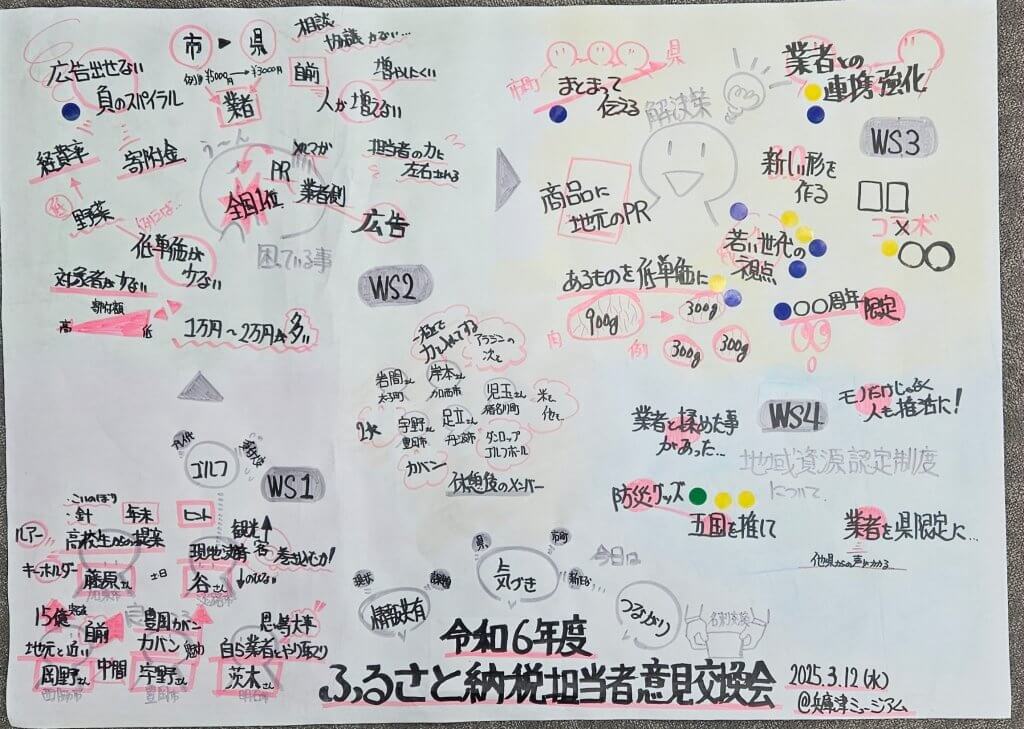 令和6年度
ふるさと納税担当者意見交換会
2025.3.12(水)
@兵庫津ミュージアム
今日は
情報共有
現状
県
市町
気づき
つながり
名刺交換
WS1
ゴルフ
針
年末
ヒント
観光
ルアー
高校生からの提案
現地決済
巻き込む力!
キーホルダー
藤原さん
土日
谷さん
15億
自前
豊岡カバン
思い大事
地元と近い
カバン
魅力
自ら業者とやり取り
岡野さん
中間
宇野さん
茨木さん
西脇市
豊岡市
明石市
WS2
困っている事
う〜ん
広告出せない
負のスパイラル
市
県
例)¥5000円→¥3000円
業者
相談
協議
少ない…
自前
増やしたい
人が増えない
経費率
寄附金
PR
全国1位
業者側
担当者の力に
左右される
広告
野菜
例には…
低単価が
少ない
対象者が少ない
寄附額
高
低
1万円〜2万円が多い
一極で
力を入れてする
アラジンの
次を
岩間さん
太子町
岸本さん
加西市
児玉さん
猪名川町
米と
他で
2次
宇野さん
豊岡市
足立さん
丹波市
ダンロップ
ゴルフボール
カバン
休憩後のメンバー
WS3
解決策
市町
県
まとまって
伝える
業者との
連携強化
新しい形を
作る
□□
×
コラボ
○○
商品に
地元のPR
若い世代の
視点
あるものを低単価に
○○周年限定
肉
900g
300g
例
300g
300g
WS4
地域資源認定制度
について
業者と揉めた事
があった…
モノだけじゃなく
人も推活に!
防災グッズ
五国を推して
業者を県限定に…
他県からの声かかる